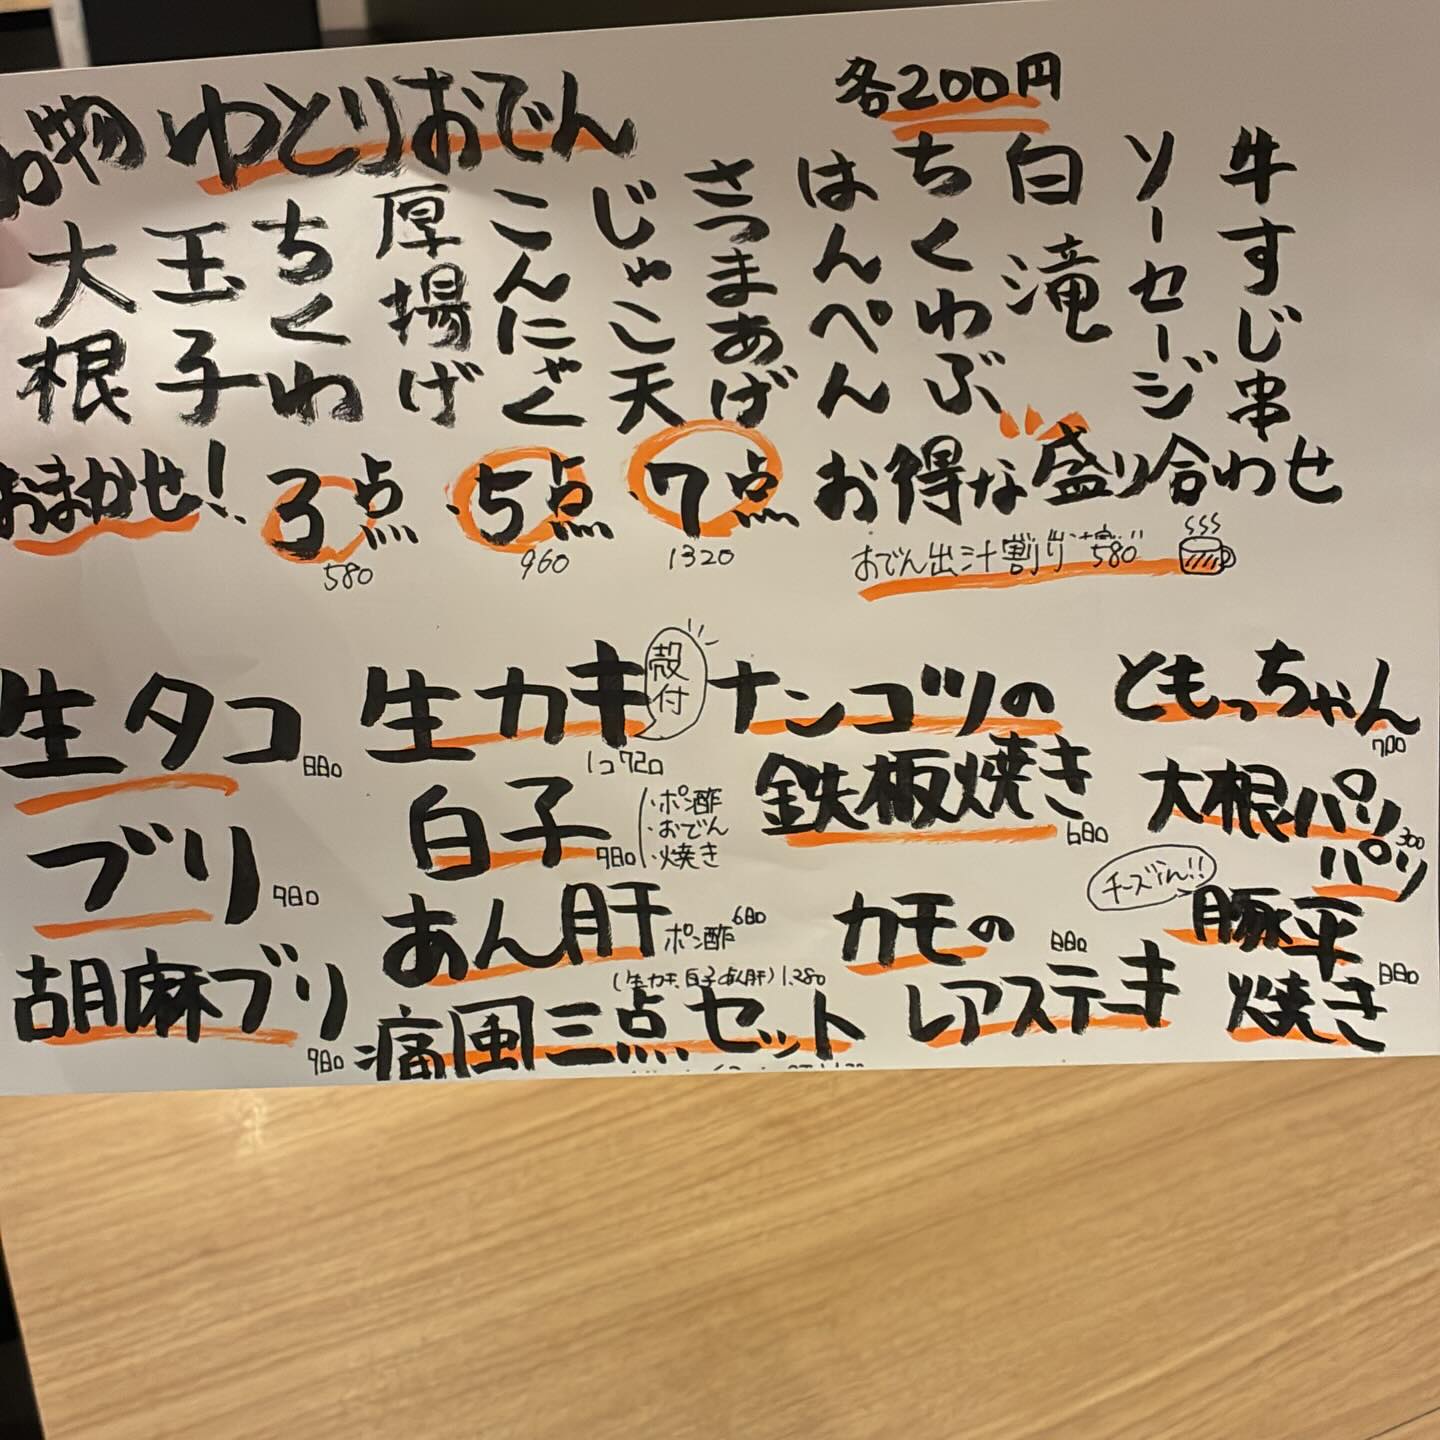 物 ゆとりおでん
各200円
大根
玉子
ちくわ
厚揚げ
こんにゃく
じゃこ天
さつまあげ
はんぺん
ちくわぶ
白滝
ソーセージ
牛すじ串
おまかせ! 3点 5点 7点 お得な盛り合わせ
580 960 1320
おでん出汁割り 580
生タコ 880
ブリ 980
胡麻ブリ 980
生カキ 殻付
1コ720
白子 980
・ポン酢
・おでん
・焼き
あん肝 680
ポン酢
(生カキ、白子、あん肝) 1.280
痛風三点セット
ナンコツの
鉄板焼き 680
カモの
レアステーキ 880
ともっちゃん
700
大根パリ
パリ 300
チーズin!!
豚平
焼き 880